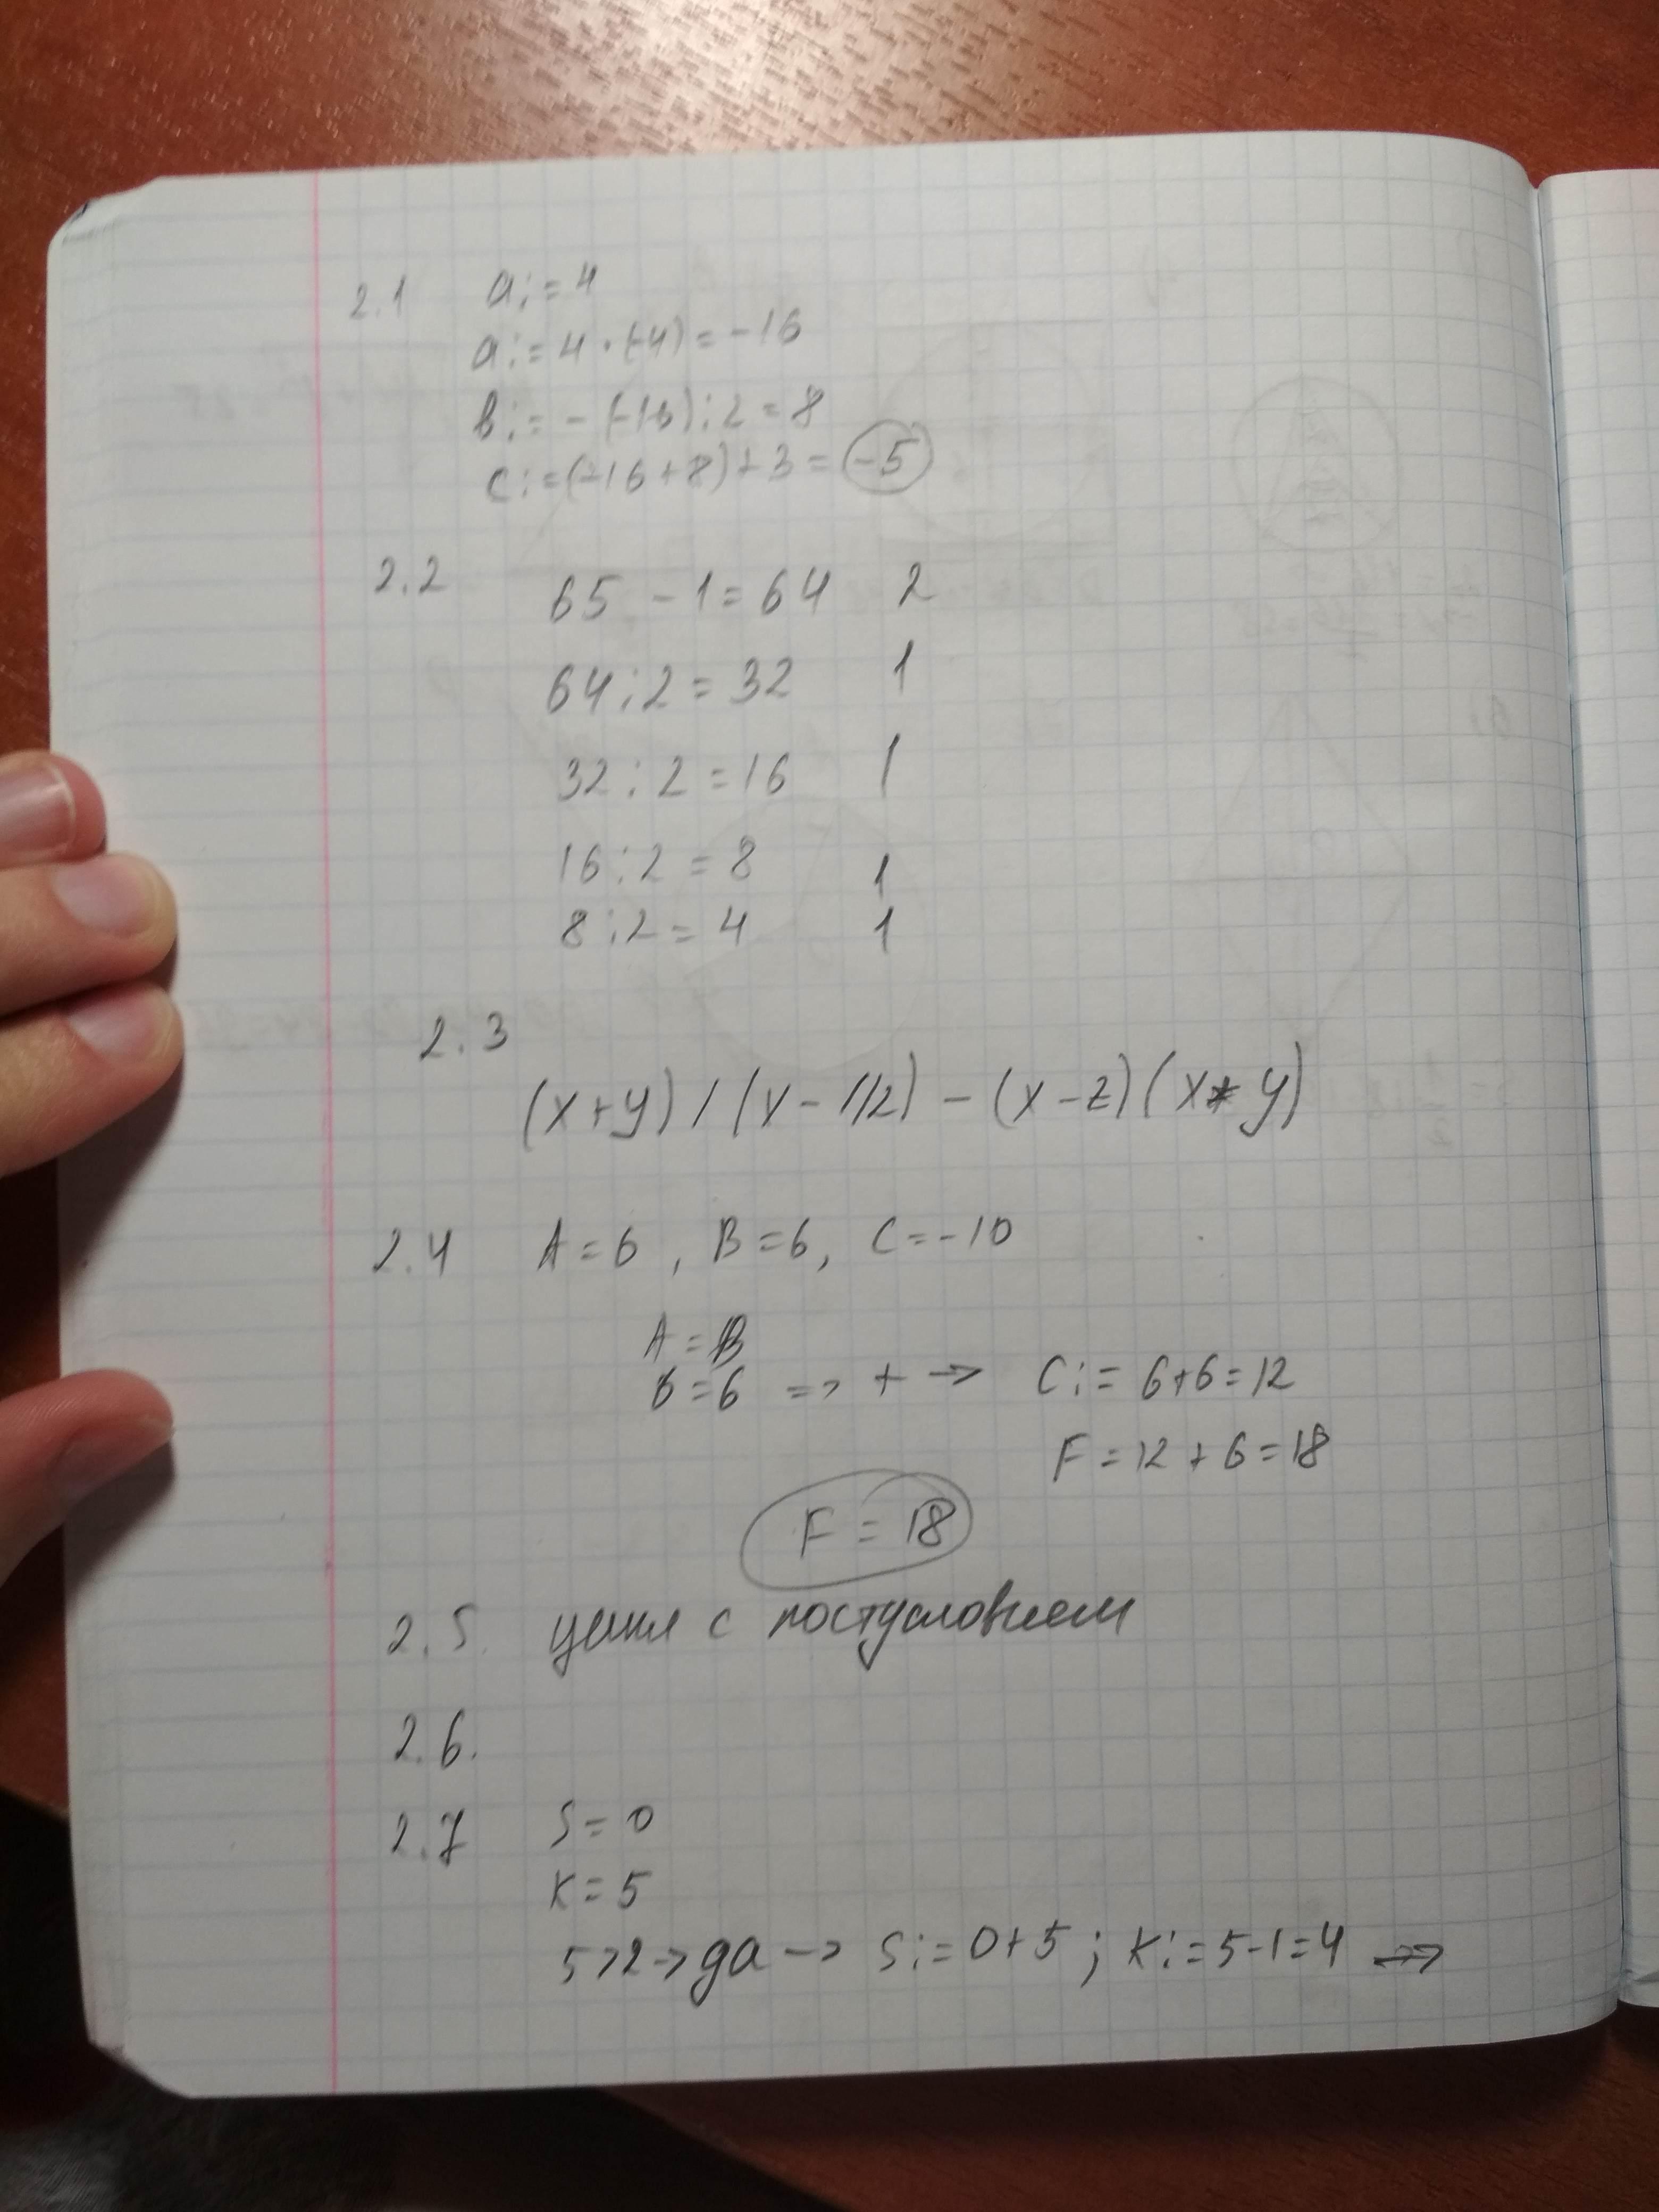 2.1 a:=4
a:=4·(-4)=-16
b:=-(-16):2=8
c:=(-16+8)+3=-5
2.2 65-1=64 2
64:2=32 1
32:2=16 1
16:2=8 1
8:2=4 1
2.3
(x+y)/(y-1/2)-(x-z)(x*y)
2.4 A=6, B=6, C=-10
A=B
6=6 => + -> C:=6+6=12
F=12+6=18
F=18
2.5. цикл с постусловием
2.6.
2.7 S=0
K=5
5>2->да-> S:=0+5; K:=5-1=4 =>